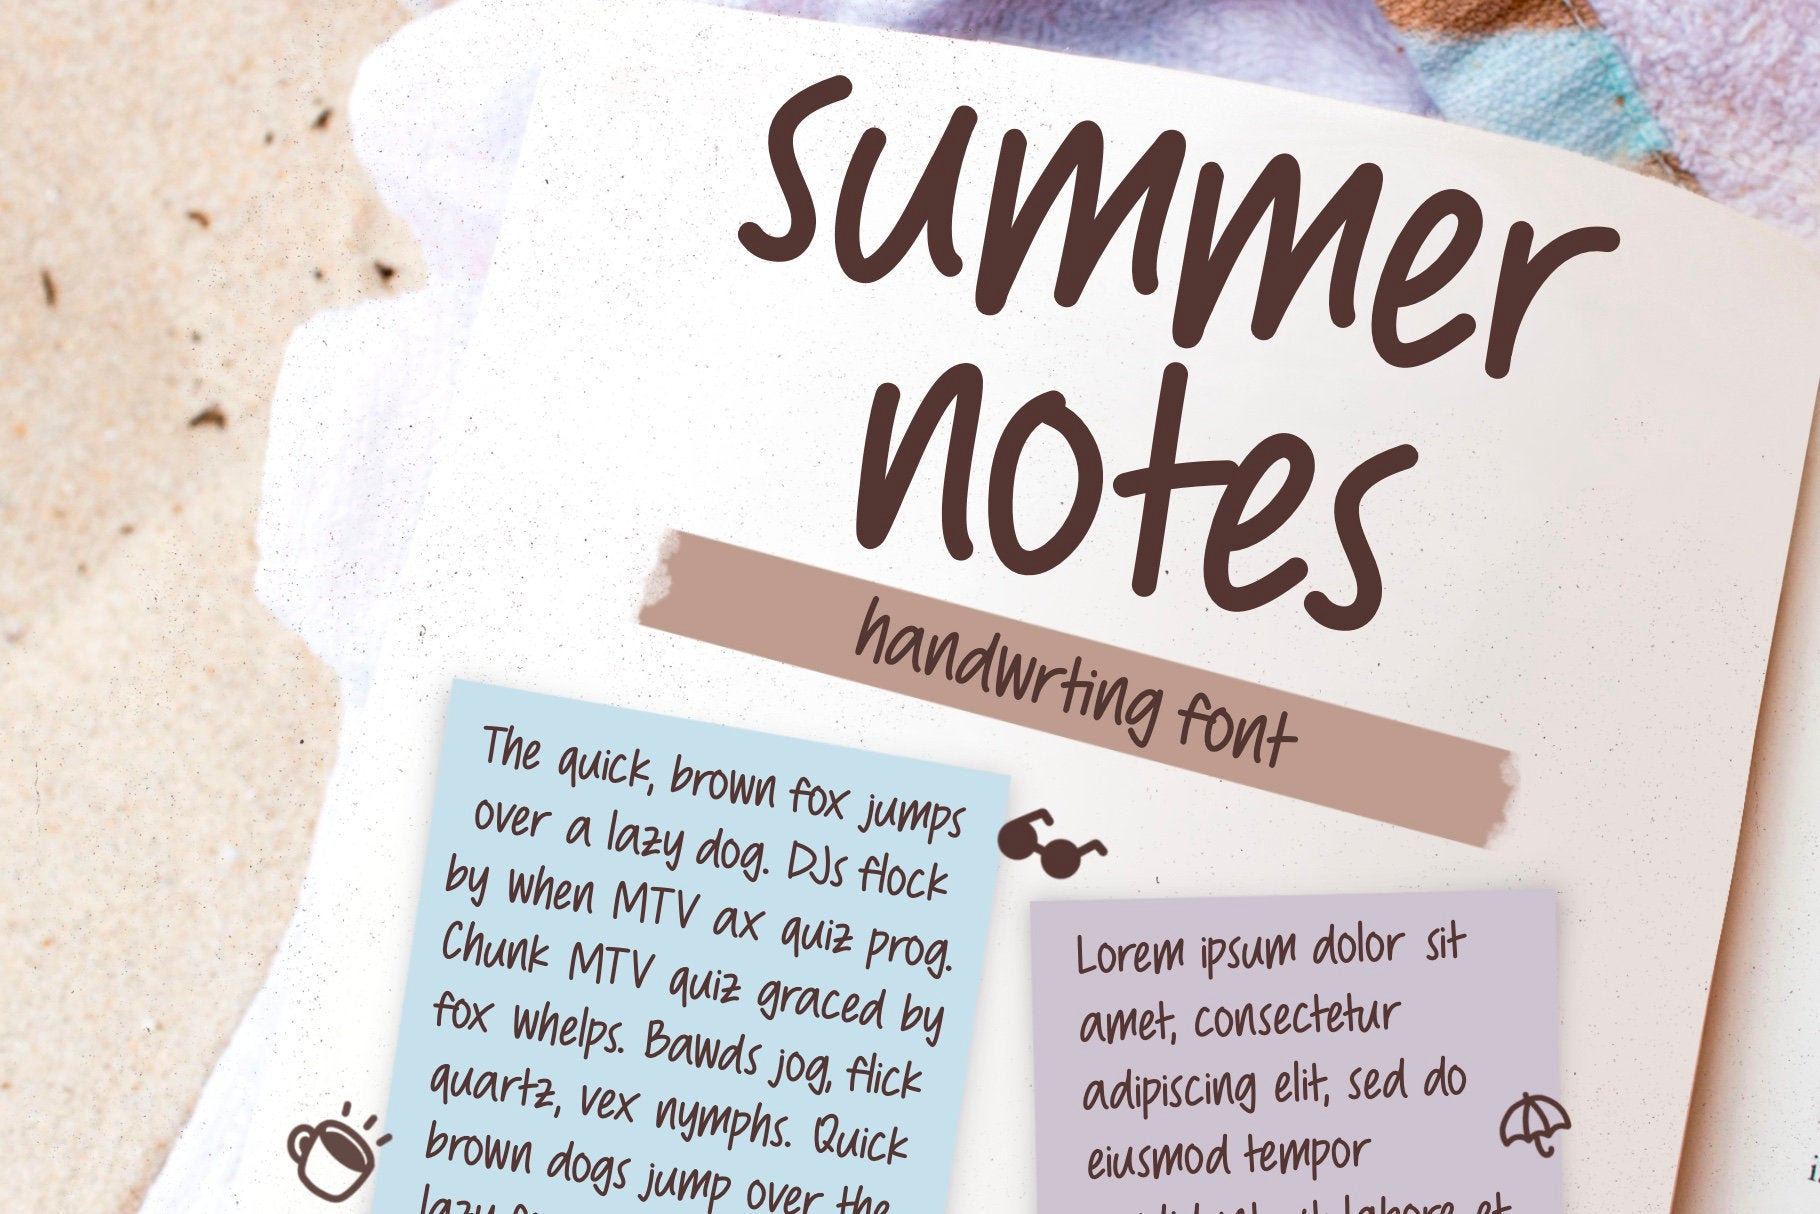 summer
notes
handwrting font
The quick, brown fox jumps
over a lazy dog. DJs flock
by when MTV ax quiz prog.
Chunk MTV quiz graced by
fox whelps. Bawds jog, flick
quartz, vex nymphs. Quick
brown dogs jump over the
lazy
Lorem ipsum dolor sit
amet, consectetur
adipiscing elit, sed do
eiusmod tempor
labore et